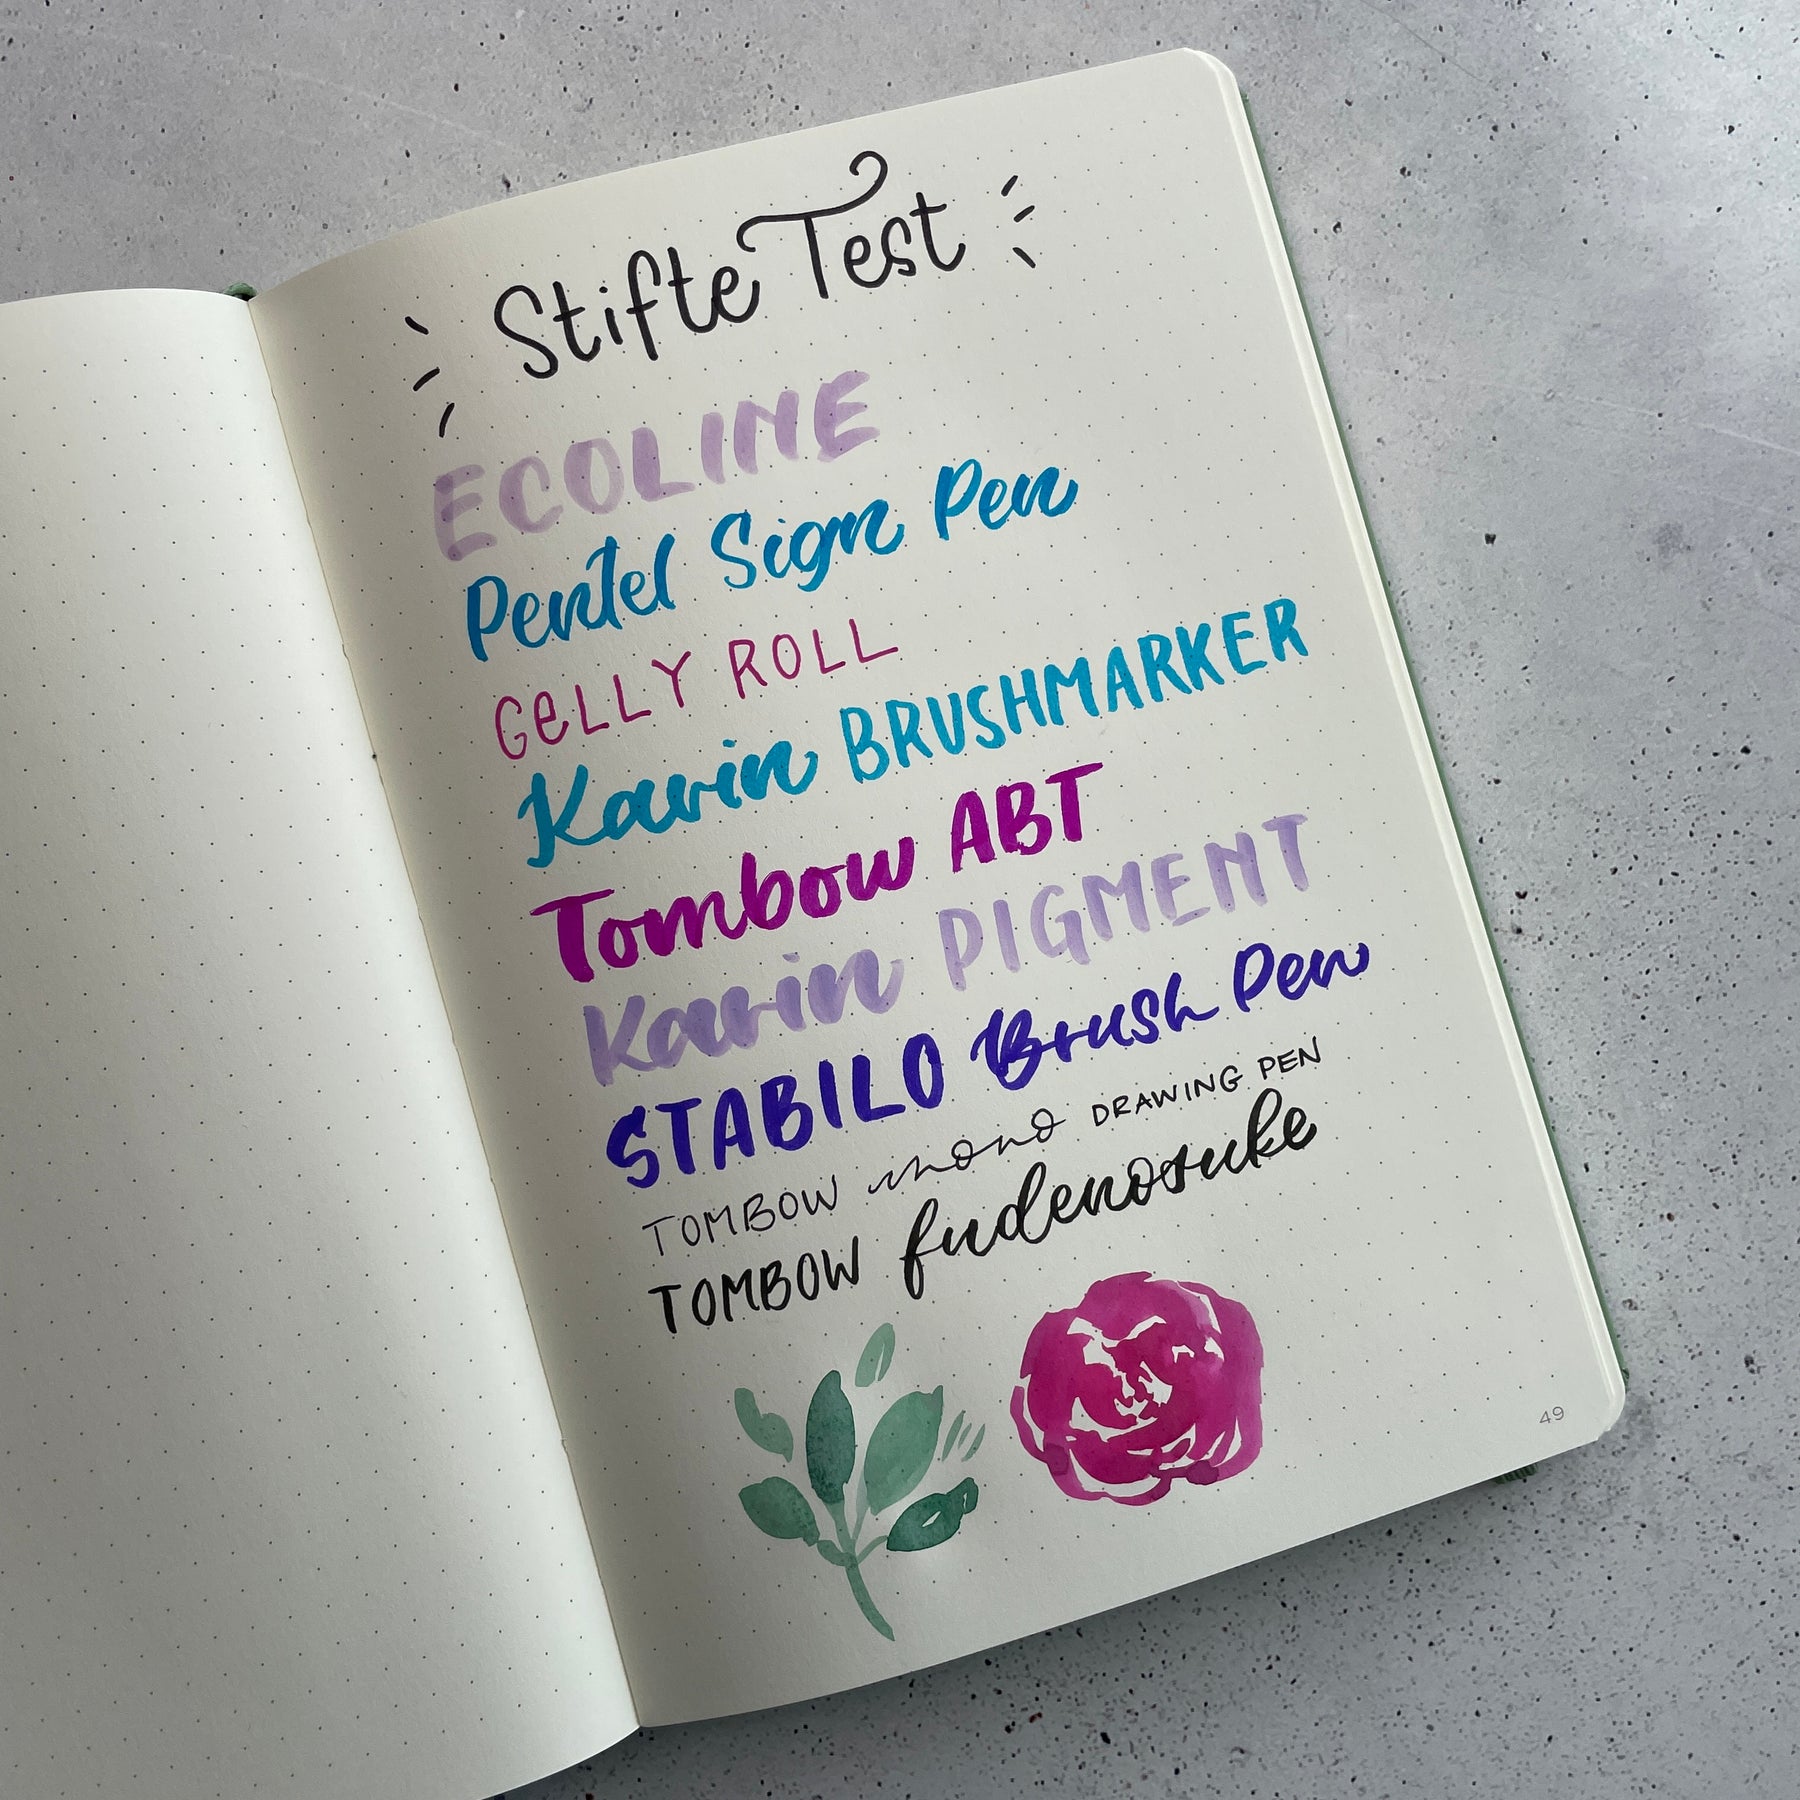 Stifte Test
ECOLINE
Pentel Sign Pen
GeLLY ROLL
Karin BRUSHMARKER
Tombow ABT
Karin PIGMENT
STABILO Brush Pen
TOMBOW mono DRAWING PEN
TOMBOW fudenosuke
49